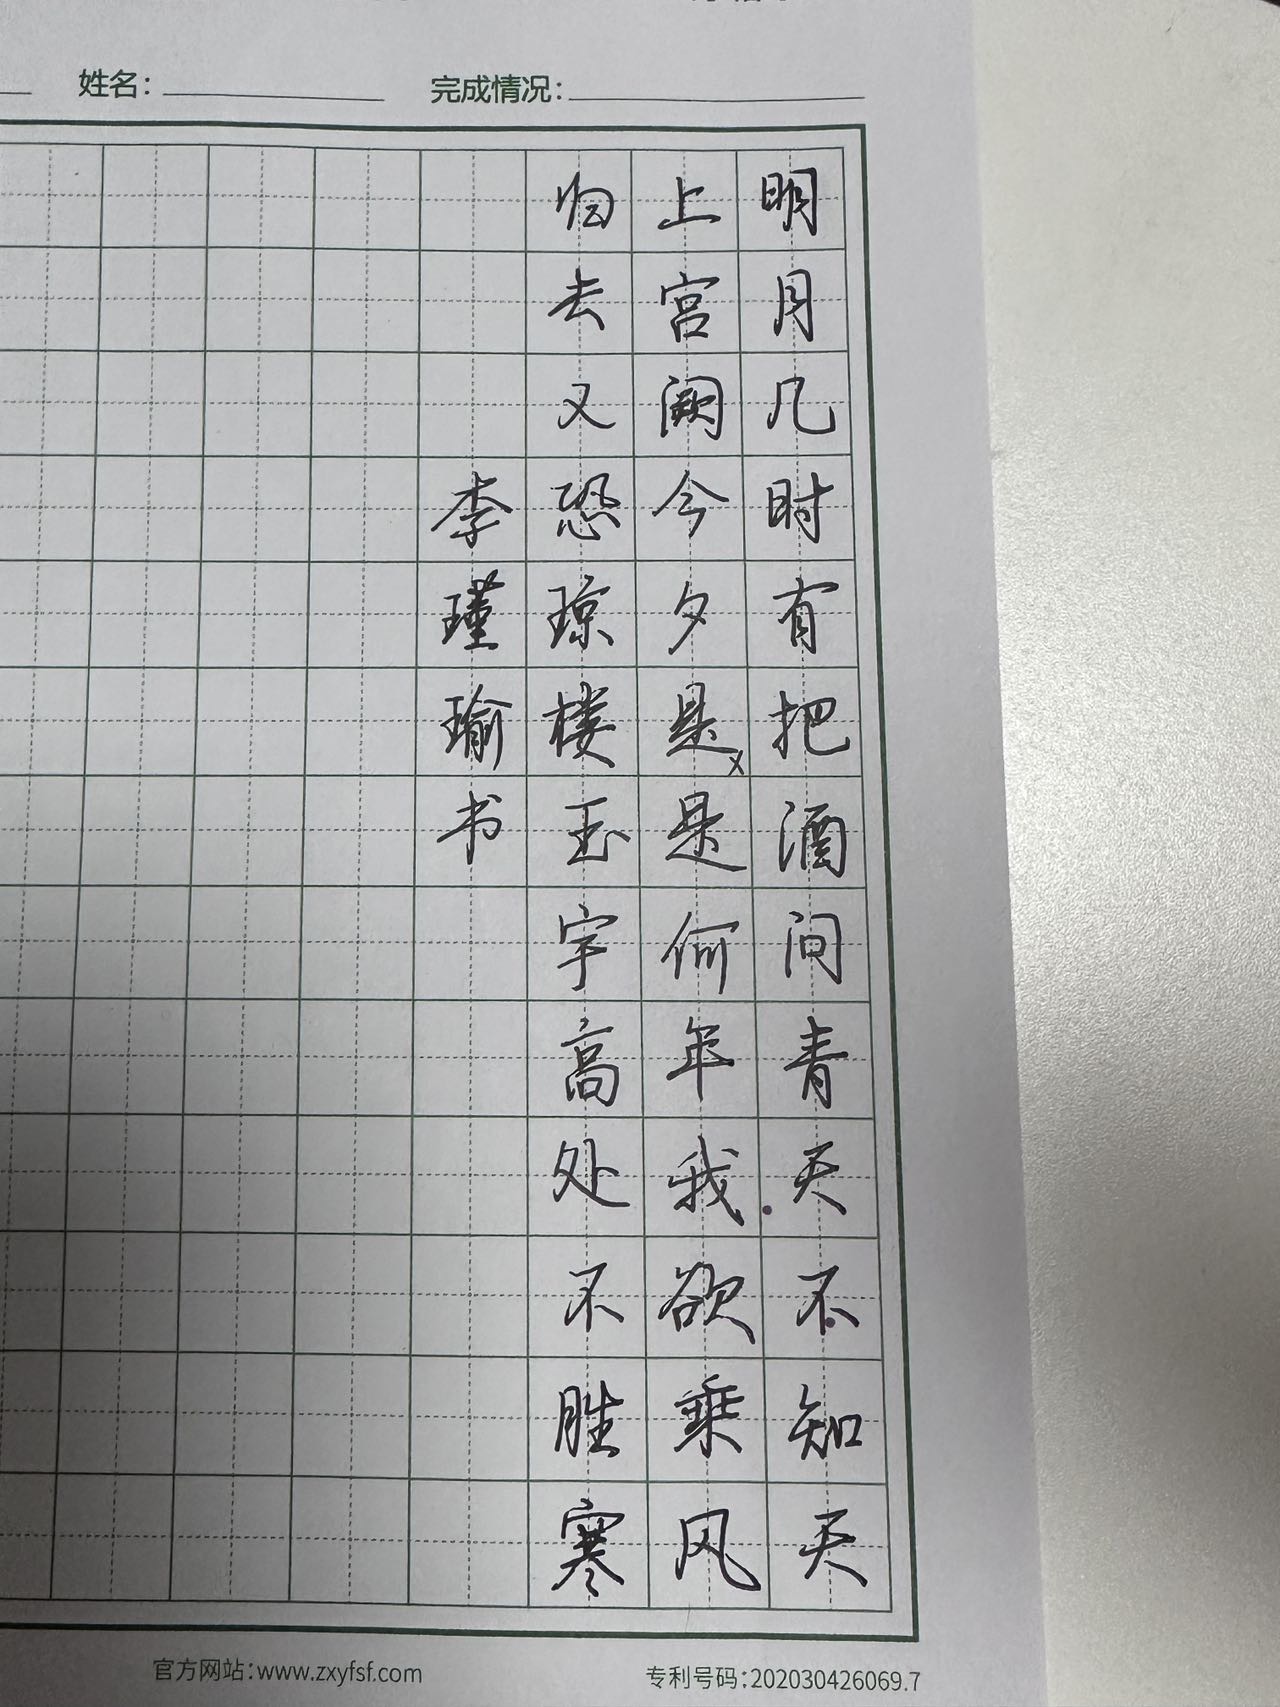 姓名：
完成情况：
明月几时有把酒问青天不知天
上宫阙今夕是是何年我欲乘风
归去又恐琼楼玉宇高处不胜寒
李瑾瑜书
官方网站：www.zxyfsf.com
专利号码：202030426069.7